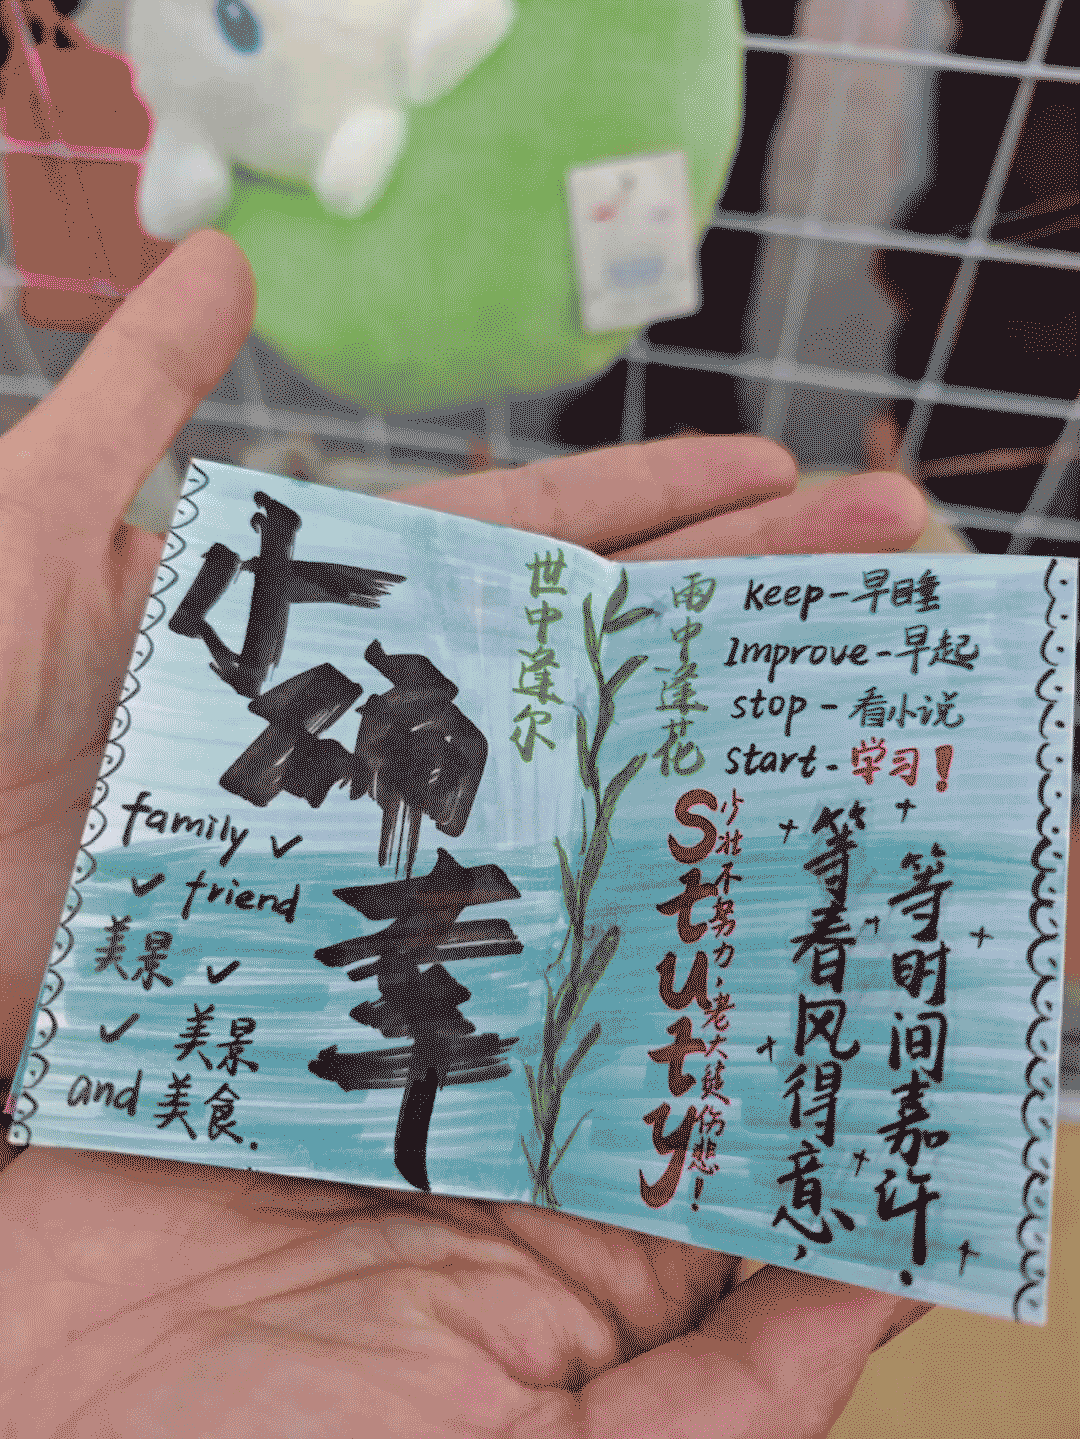 小确幸
family ✓
✓ friend
美景 ✓
✓ 美景
and 美食.
世中逢尔
雨中逢花
keep-早睡
Improve-早起
stop-看小说
start-学习!
Stuty
少壮不努力，老大徒伤悲！
等春风得意，
等时间嘉许.